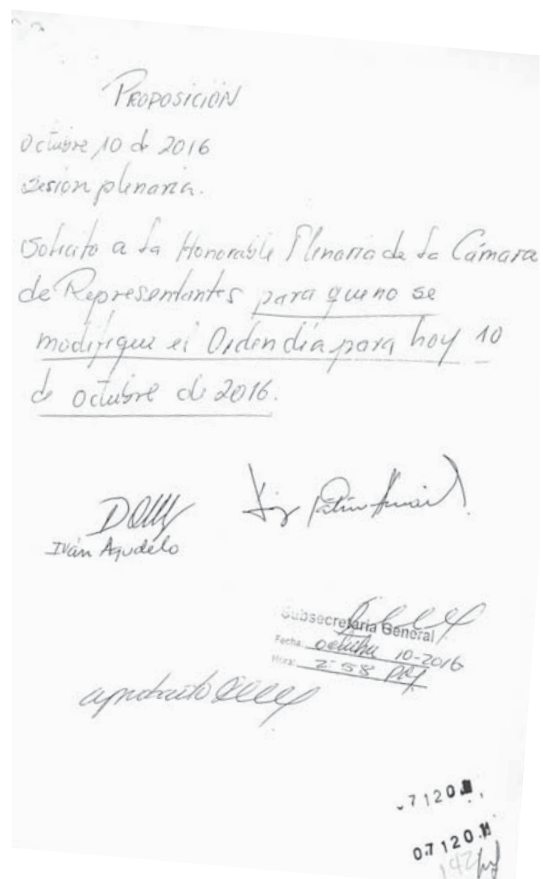 PROPOSICIÓN
Octubre 10 de 2016
Sesion plenaria.
Solicito a la Honorable Plenaria de la Cámara
de Representantes para que no se
modifique el Orden dia para hoy 10
de octubre de 2016.
Iván Agudelo
Subsecretaría General
Fecha: octubre 10-2016
Hora: 2:58 pm
aprobado
7120
07120
142